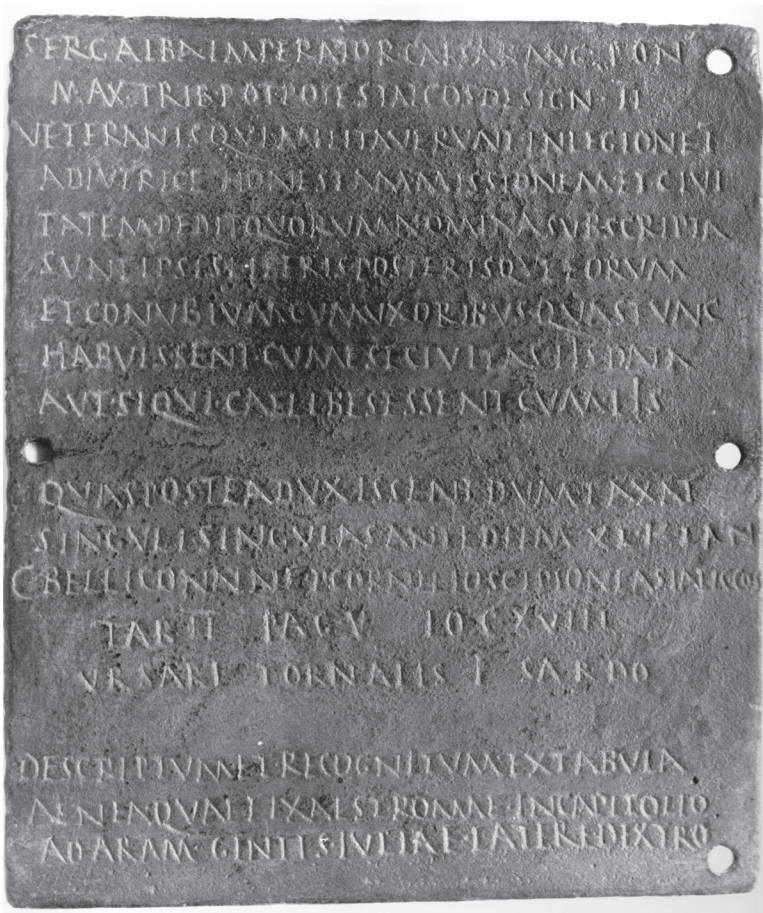 SERGALBA IMPERATOR CAESAR AVG PON
MAX TRIB POT POTESTAT COS DESIGN TI
VETERANIS QVI MILITAVERVNT IN LEGIONE T
ADIVTRICE HONESTAM MISSIONEM ET CIVI
TATEM DEDIT QVORVM NOMINA SVBSCRIPTA
SVNT IPSIS LIBERIS POSTERISQVE EORVM
ET CONVBIVM CVM VXORIBVS QVAS TVNC
HABVISSENT CVM EST CIVITAS IIS DATA
AVT SIQVI CAELIBES ESSENT CVM IIS
QVAS POSTEA DVXISSENT DVMTAXAT
SINGVLI SINGVLAS ANTE DIEM XI K IAN
C BELLICO NATALE P CORNELIO SCIPIONE ASIATICO COS
TAB II PAG V LOC XVIII
VRSARI TORNALIS F SARDO
DESCRIPTVM ET RECOGNITVM EX TABVLA
AENEA QVAE FIXA EST ROMAE IN CAPITOLIO
AD ARAM GENTIS IVLIAE LATERE DEXTRO